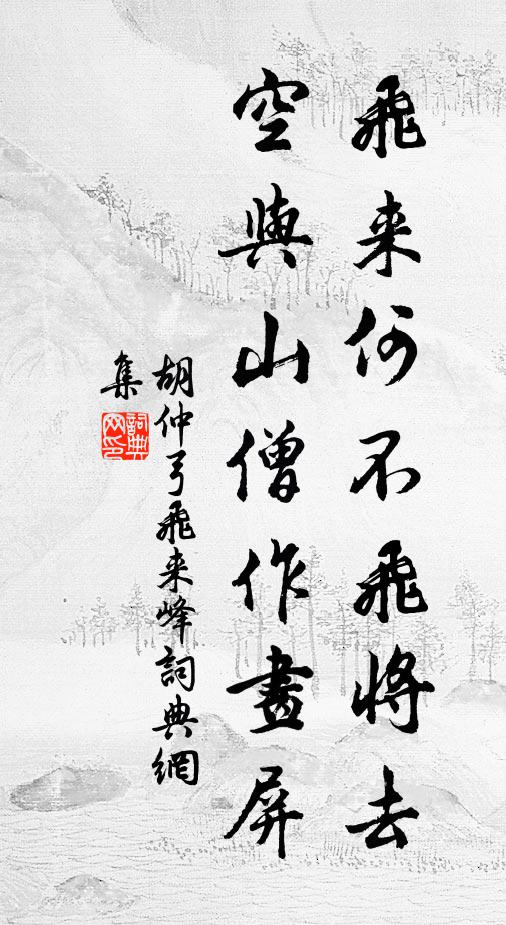 飛来何不飛將去
空與山僧作畫屏
胡仲弓飛来峰詞典網
集
詞典网印